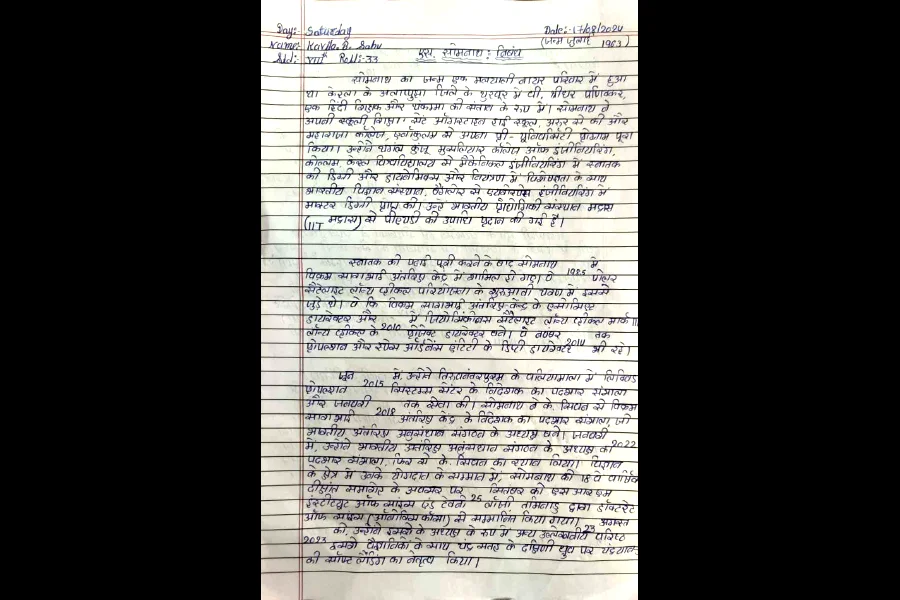 Day:- Saturday Date:- 17/08/2024
Name:- Kavya. R. Sahu (जन्म जुलाई 1963)
Std:- VIIIth Roll:-33 एस. सोमनाथ : निबंध
सोमनाथ का जन्म एक मलयाली नायर परिवार में हुआ
था केरल के अलाप्पुझा जिले के थुरवूर में वी. श्रीधर पणिक्कर,
एक हिंदी शिक्षक और थंकम्मा की संतान के रूप में। सोमनाथ ने
अपनी स्कूली शिक्षा सेंट ऑगस्टाइन हाई स्कूल, अरूर से की और
महाराजा कॉलेज, एर्नाकुलम से अपना प्री-यूनिवर्सिटी प्रोग्राम पूरा
किया। उन्होंने थंगल कुंजू मुसलियार कॉलेज ऑफ इंजीनियरिंग,
कोल्लम, केरल विश्वविद्यालय से मैकेनिकल इंजीनियरिंग में स्नातक
की डिग्री और डायनेमिक्स और नियंत्रण में विशेषज्ञता के साथ
भारतीय विज्ञान संस्थान, बैंगलोर से एयरोस्पेस इंजीनियरिंग में
मास्टर डिग्री प्राप्त की। उन्हें भारतीय प्रौद्योगिकी संस्थान मद्रास
(IIT मद्रास) से पीएचडी की उपाधि प्रदान की गई है।
स्नातक की पढ़ाई पूरी करने के बाद सोमनाथ 1985 में
विक्रम साराभाई अंतरिक्ष केंद्र में शामिल हो गए। वे पोलर
सैटेलाइट लॉन्च व्हीकल परियोजना के शुरुआती चरण में इससे
जुड़े थे। वे कि विक्रम साराभाई अंतरिक्ष केंद्र के एसोसिएट
डायरेक्टर और 2010 में जियोसिंक्रोनस सैटेलाइट लॉन्च व्हीकल मार्क III
लॉन्च व्हीकल के प्रोजेक्ट डायरेक्टर बने। वे नवम्बर 2014 तक
प्रोपल्शन और स्पेस ऑर्डिनेंस एंटिटी के डिप्टी डायरेक्टर भी रहे।
जून 2015 में, उन्होंने तिरुवनंतपुरम के वलियामाला में लिक्विड
प्रोपल्शन सिस्टम्स सेंटर के निदेशक का पदभार संभाला
और जनवरी 2018 तक सेवा की। सोमनाथ ने के. सिवन से विक्रम
साराभाई अंतरिक्ष केंद्र के निदेशक का पदभार संभाला, जो
भारतीय अंतरिक्ष अनुसंधान संगठन के अध्यक्ष बने। जनवरी 2022
में, उन्होंने भारतीय अंतरिक्ष अनुसंधान संगठन के अध्यक्ष का
पदभार संभाला, फिर से के. सिवन का स्थान लिया। विज्ञान
के क्षेत्र में उनके योगदान के सम्मान में, सोमनाथ को 18वें वार्षिक
दीक्षांत समारोह के अवसर पर 25 सितंबर को एसआरएम
इंस्टीट्यूट ऑफ साइंस एंड टेक्नो लॉजी तमिलनाडु द्वारा डॉक्टरेट
ऑफ साइंस (ऑनोरिस कॉसा) से सम्मानित किया गया। 23 अगस्त
2023 को, उन्होंने इसरो के अध्यक्ष के रूप में अन्य उल्लेखनीय वरिष्ठ
इसरो वैज्ञानिकों के साथ चंद्र सतह के दक्षिणी ध्रुव पर चंद्रयान-3
की सॉफ्ट लैंडिंग का नेतृत्व किया।